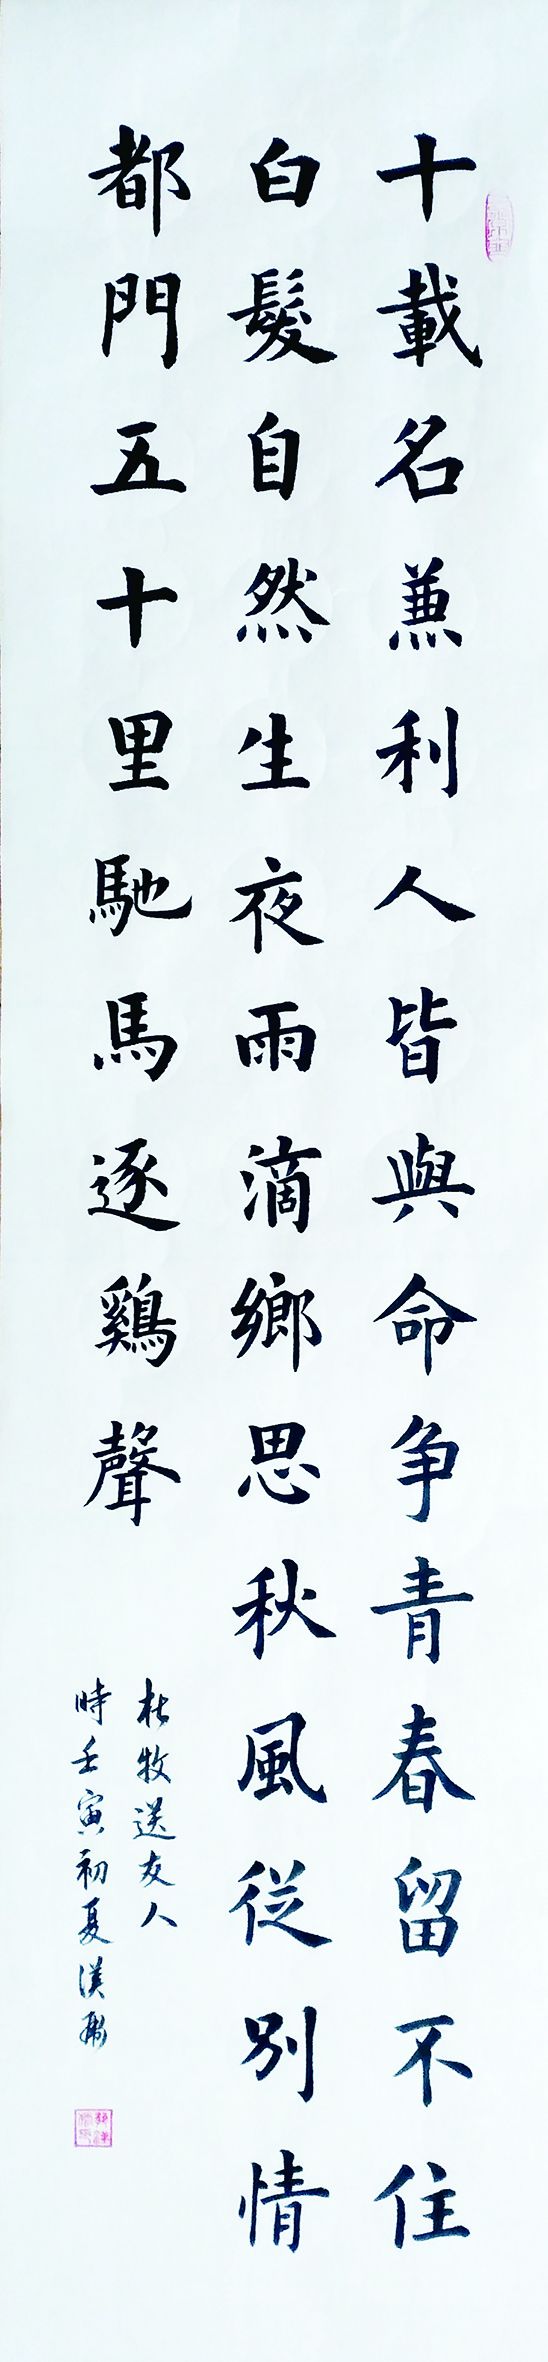 十載名兼利人皆與命争青春留不住
白髮自然生夜雨滴鄉思秋風從别情
都門五十里馳馬逐鷄聲
杜牧送友人
時壬寅初夏漢